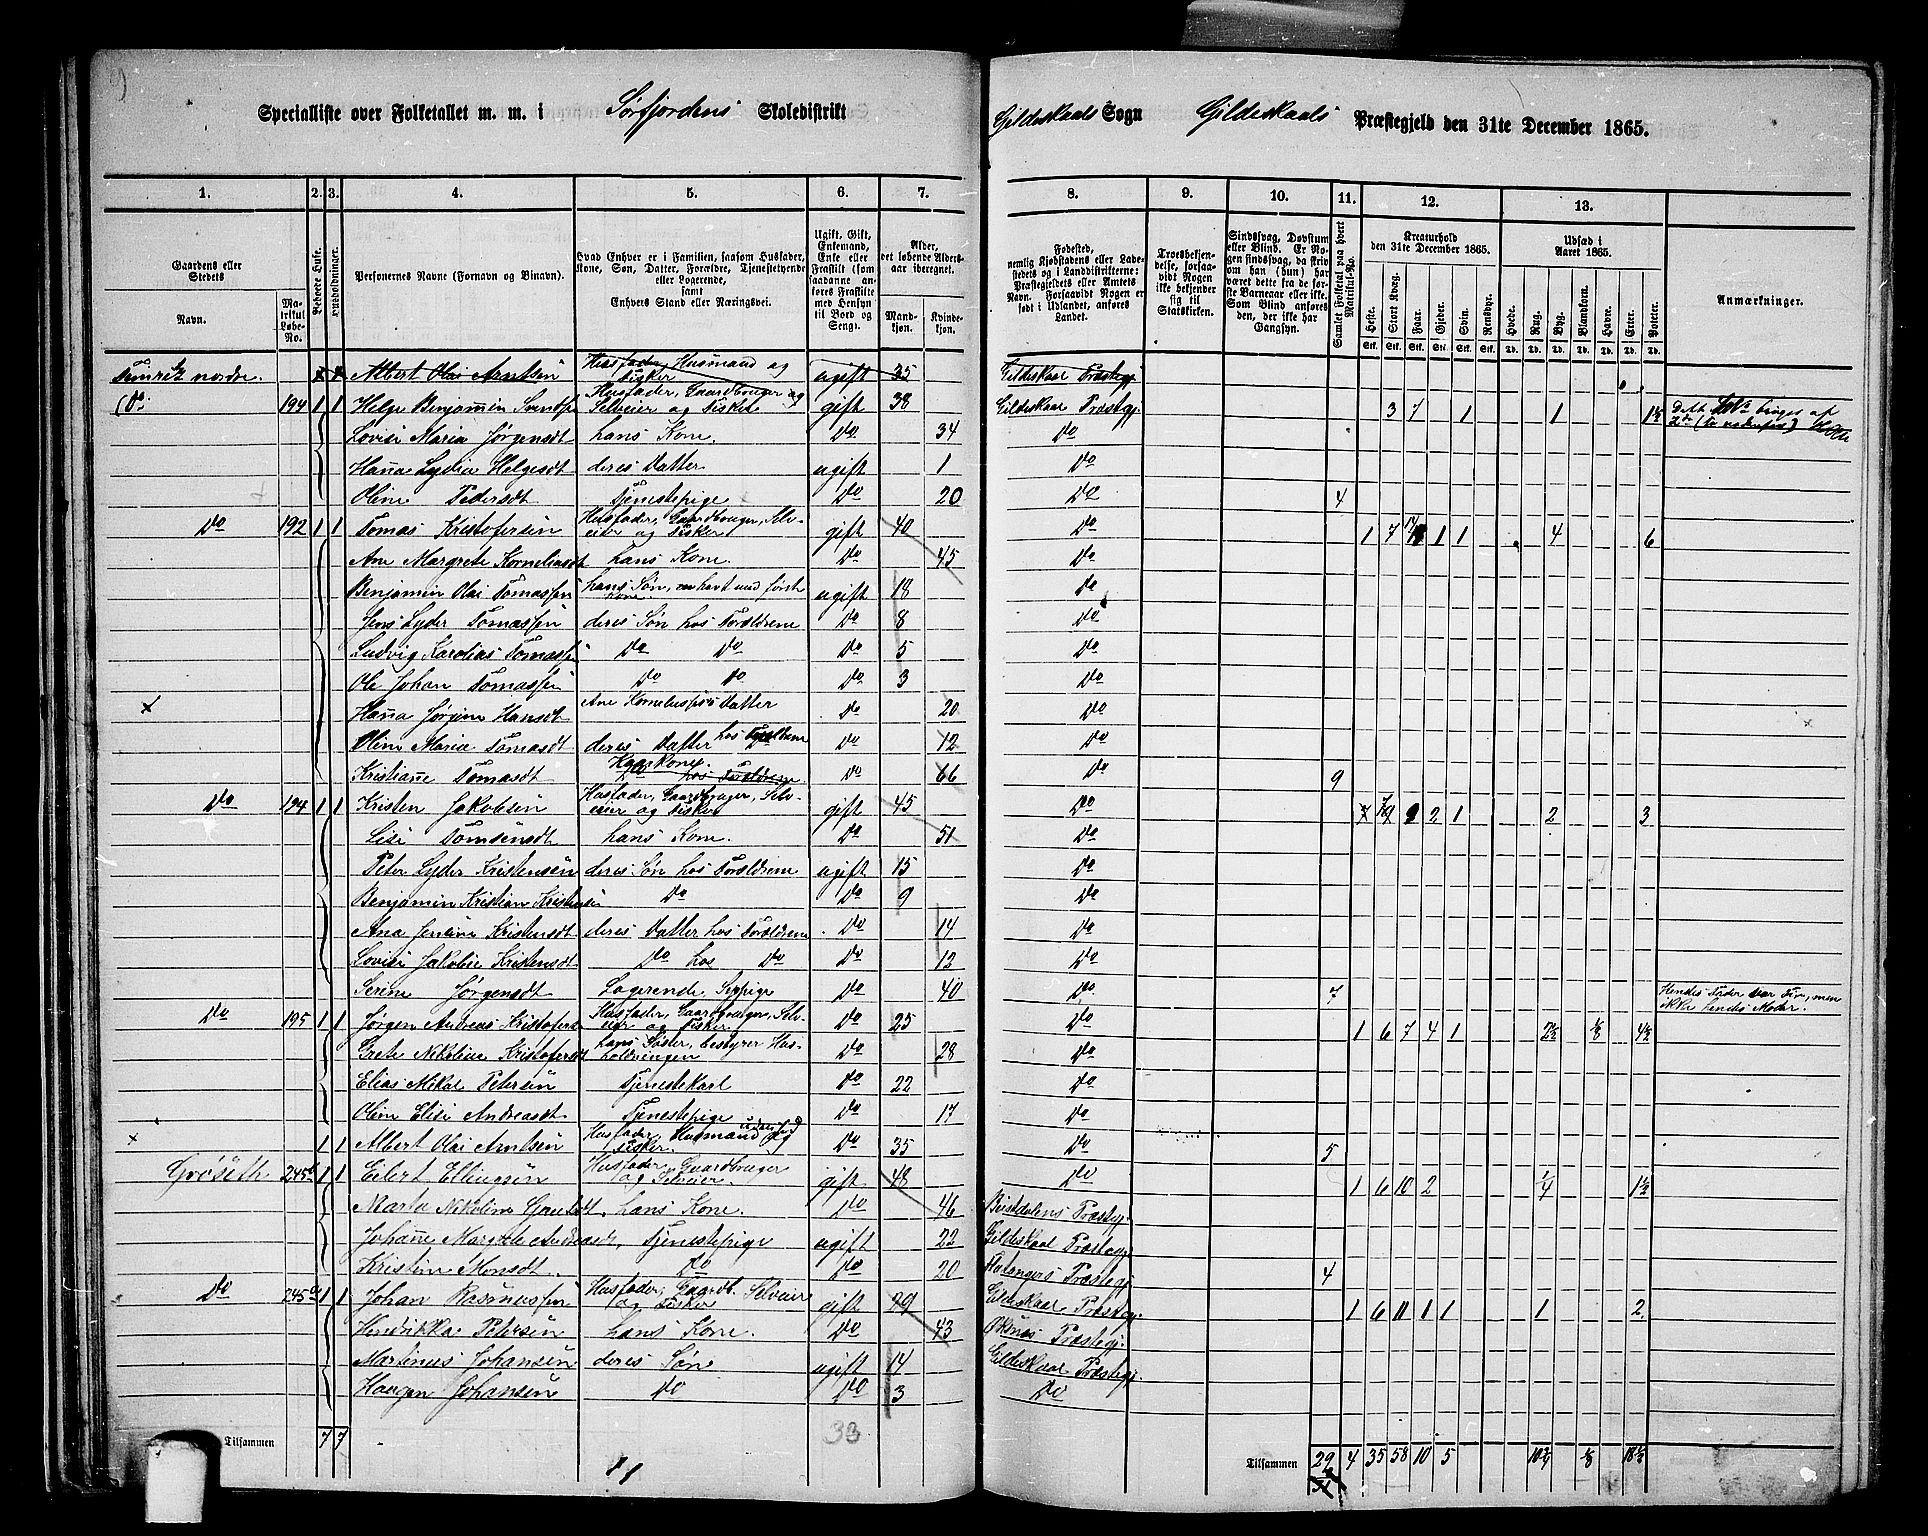 9
Specialliste over Folketallet m. m. i Sørfjordens Skoledistrikt
Gildeskaals Sogn Gildeskaals Præstegjeld den 31te December 1865.
1. 2. 3. 4. 5. 6. 7. 8. 9. 10. 11. 12. 13.
Gaardens eller Stedets
Navn.
Matrikul Løbe-No.
Beboede Huse.
Husholdninger.
Personernes Navne (Fornavn og Binavn).
Hvad Enhver er i Familien, saasom Husfader, Kone, Søn, Datter, Forældre, Tjenestetyende eller Logerende, samt Enhvers Stand eller Næringsvei.
Ugift, Gift, Enkemand, Enke eller Fraskilt (som saadanne anføres Fraskilte med Hensyn til Bord og Seng).
Alder, det løbende Alders-aar iberegnet.
Mandkjøn. Kvindekjøn.
Fødested, nemlig Kjøbstadens eller Ladestedets og i Landdistrikterne: Præstegjeldets eller Amtets Navn. Forsaavidt Nogen er født i Udlandet, anføres Landet.
Troesbekjendelse, forsaavidt Nogen ikke bekjender sig til Statskirken.
Sindssvag, Døvstum eller Blind. Er Nogen sindssvag, da skriv om han (hun) har været dette fra de første Barneaar eller ikke. Som Blind anføres den, der ikke har Gangsyn.
Samlet Folketal paa hvert Matrikul-No.
Kreaturhold den 31te December 1865.
Heste. Stort Kvæg. Faar. Gjeder. Svin. Rensdyr.
Udsæd i Aaret 1865.
Hvede. Rug. Byg. Blandkorn. Havre. Erter. Poteter.
Anmærkninger.
nordre. x x Albert Olai Arntsen Husfader, Husmand og Fisker ugift 35 Gildeskaal Præstegj.
Do 194 1 1 Helge Benjamin Husfader, Gaardbruger og Selveier og Fisker gift 38 Gildeskaal Præstegj. 3 7 1 1 1½
Lovise Maria Jørgensdt hans Kone. Do 34 Do
Hana Lydia Helgesdt deres Datter ugift 1 Do
Oline Pedersdt Tjenestepige Do 20 Do 4
Do 192 1 1 Tomas Kristofersen Husfader, Gaardbruger, Selveier og Fisker gift 40 Do 1 7 1 1 4 6
Ane Margrete Korneliasdt hans Kone. Do 45 Do
Benjamin Olai Tomassen hans Søn, havt med første Kone ugift 18 Do
Jens Lyder Tomassen deres Søn hos Forældrene Do 8 Do
Ludvig Karolias Tomassen Do Do Do 5 Do
Ole Johan Tomassen Do Do Do 3 Do
x Hana Jørgine Hansdt Ane Datter Do 20 Do
Oline Maria Tomasdt deres Datter hos Forældrene Do 12 Do
Kristiane Tomasdt Kaarkone, Do hos Forældrene Do 66 Do 9
Do 194 1 1 Kristen Jakobsen Husfader, Gaardbruger, Selveier og Fisker gift 45 Do 2 1 2 3
Lisi Tomsensdt hans Kone. Do 51 Do
Peter Lyder Kristensen deres Søn hos Forældrene ugift 15 Do
Benjamin Kristian Kristensen Do Do 9 Do
Ana Jensine Kristensdt deres Datter hos Forældrene Do 14 Do
Lovise Jakobine Kristensdt Do hos Do Do 12 Do
Serine Jørgensdt Logerende, Do 40 Do 7 Hendes Fader var Fin, men ikke hendes Moder.
Do 195 1 1 Jørgen Andreas Kristofersen Husfader, Gaardbruger, Selveier og Fisker Do 25 Do 1 6 7 4 1 2½ ⅛ 4½
Grete Nikoline Kristofersdt hans Søster, bestyrer Husholdningen Do 28 Do
Elias Mikal Petersen Tjenestekarl Do 22 Do
Oline Elisi Andreasdt Tjenestepige Do 17 Do
x 1 1 Albert Olai Arntsen Husfader, Husmand og Fisker. Do 35 Do 5
Grøseth 245 1 1 Eilert Ellingsen Husfader, Gaardbruger og Selveier gift 48 Do 1 6 10 2 ¼ 1½
Marta Nikoline hans Kone. Do 46 Præstegj.
Johane Margrete Andreasdt, Tjenestepige ugift 22 Gildeskaal Præstegj.
Kristine Monsdt. Do Do 20 Præstegj. 4
Do 245 1 1 Johan Rasmussen Husfader, Gaardb. Selveier og Fisker gift 49 Gildeskaal Præstegj. 1 6 11 1 1 1 2
Hendrikka Petersen hans Kone. Do 43 Øksnes Præstegj.
Martinus Johansen deres Søn ugift 14 Gildeskaal Præstegj.
Haagen Johansen Do Do 3 Do
Tilsammen 7 7 33
Tilsammen 29 4 35 58 10 5 10¾ ⅛ 18½